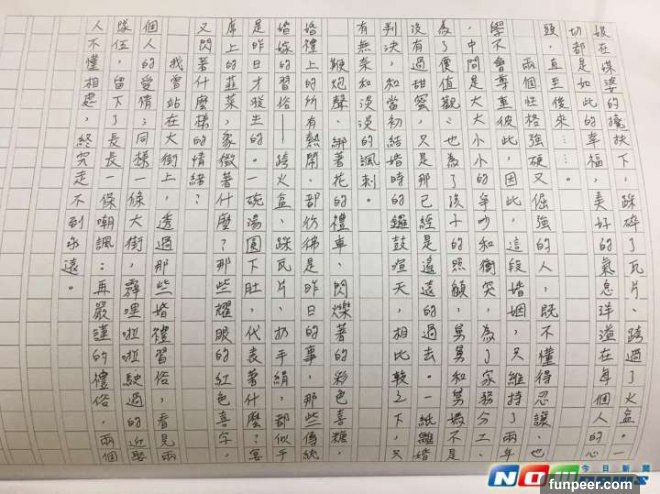 娘在媒婆的攙扶下,踩碎了瓦片、跨過了火盆。一
切都是如此的幸福,美好的氣息洋溢在每個人的心
頭,直至後來……。
兩個性格強硬又倔強的人,既不懂得忍讓、也
學不會尊重彼此,因此,這段婚姻只維持了兩年
。中間大大小小的爭吵和衝突,為了家務分工、
為了價值觀、也為了孩子的照顧,舅舅和舅媽不
沒有過甜蜜,只是那已經是遙遠的過去。一紙離婚
判決,和當初結婚時的鑼鼓喧天,相比較之下,只
有無奈和淡淡的諷刺。
鞭炮聲、綁著花的禮車、閃爍著的彩色喜糖,
婚禮上所有熱鬧的部份彷彿是昨日的事,那些傳統
婚嫁習俗——跨火盆、踩瓦片、扔手絹,都似乎
是昨日才發生的。一碗湯圓下肚,代表著什麼?宴
席上的韮菜,象徵著什麼?那些耀眼的紅色喜字,
又閃著什麼樣的情緒?
我曾站在大街上,透過那些婚禮習俗,看見兩
個人的愛情;同樣一條大街,霹哩啪啦駛過的迎娶
隊伍,留下了長長一條嘲諷:再嚴謹的禮俗,兩個
人不懂相處,終究走不到永遠。
今日新聞
NOWnews
funpeer.com